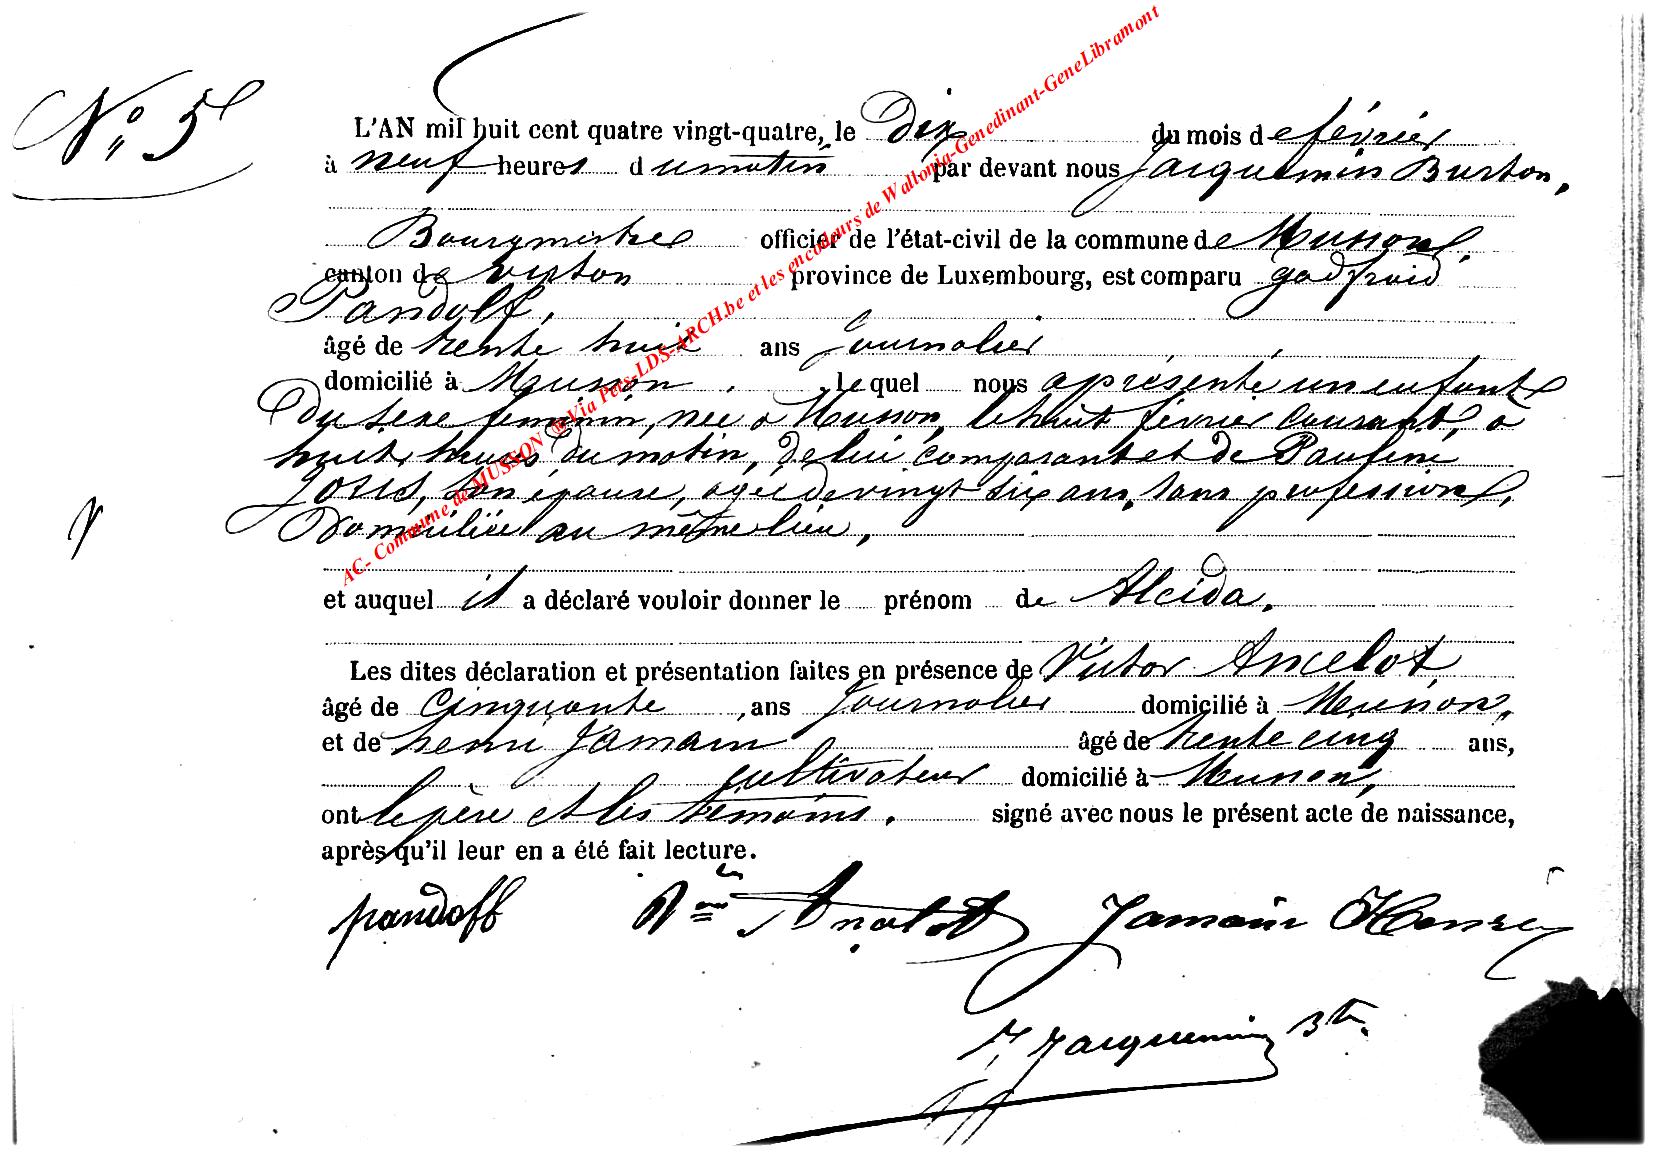 N° 5
L'AN mil huit cent quatre vingt-quatre, le Dix du mois de février
à neuf heures du matin par devant nous Jacquemin Burton,
Bourgmestre officier de l'état-civil de la commune de Musson,
canton de Virton province de Luxembourg, est comparu godfroid
Pandolf,
âgé de trente huit ans Journalier
domicilié à Musson, lequel nous a présenté un enfant
Du sexe féminin, née à Musson, le huit février courant, à
huit heures du matin, de lui comparant et de Pauline
son épouse, agée de vingt six ans, sans profession,
Domiciliée au même lieu.
et auquel il a déclaré vouloir donner le prénom de Alcida.
Les dites déclaration et présentation faites en présence de Victor Ancelot,
âgé de Cinquante, ans Journalier domicilié à Musson,
et de henri Jamain âgé de trente cinq ans,
cultivateur domicilié à Musson,
ont le père et les témoins. signé avec nous le présent acte de naissance,
après qu'il leur en a été fait lecture.
pandoff Jamain Henri
Jacquemin Btn.
AC- Commune de MUSSON @ Via Pers-LDS-ARCH.be et les encodeurs de Wallonia-Genedinant-GeneLibramont